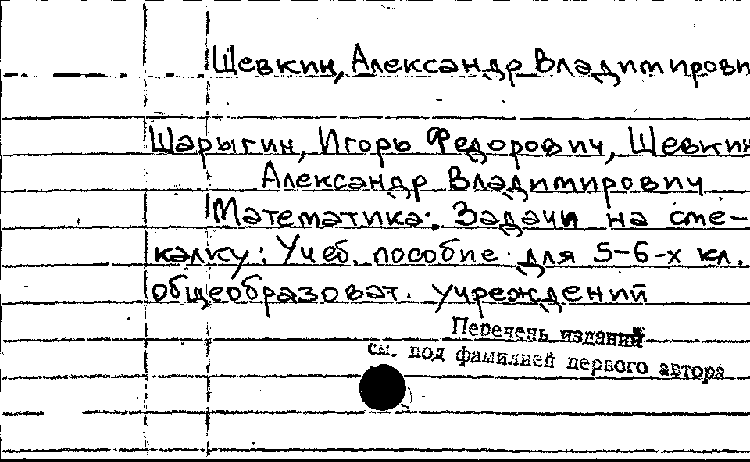 Шевкин, Александр Владимирови
Шарыгин, Игорь Федорович, Шевкин
Александр Владимирович
Математика: Задачи на сме-
калку: Учеб. пособие для 5-6-х кл.
общеобразоват. учреждений
Перечень изданий
см. под фамилией первого автора